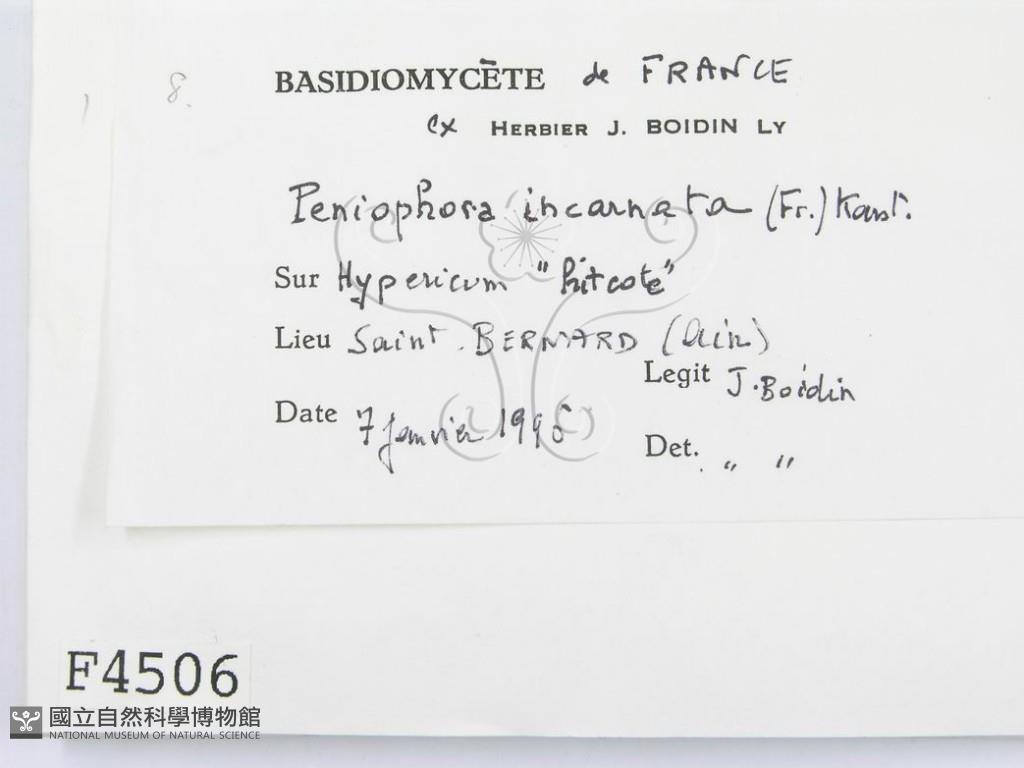 8.
BASIDIOMYCÈTE de FRANCE
ex HERBIER J. BOIDIN LY
Peniophora incarnata (Fr.) Karst.
Sur Hypericum "hitcote"
Lieu Saint. BERNARD (Ain)
Legit J. Boidin
Date 7 janvier
Det. " "
F4506
國立自然科學博物館
NATIONAL MUSEUM OF NATURAL SCIENCE